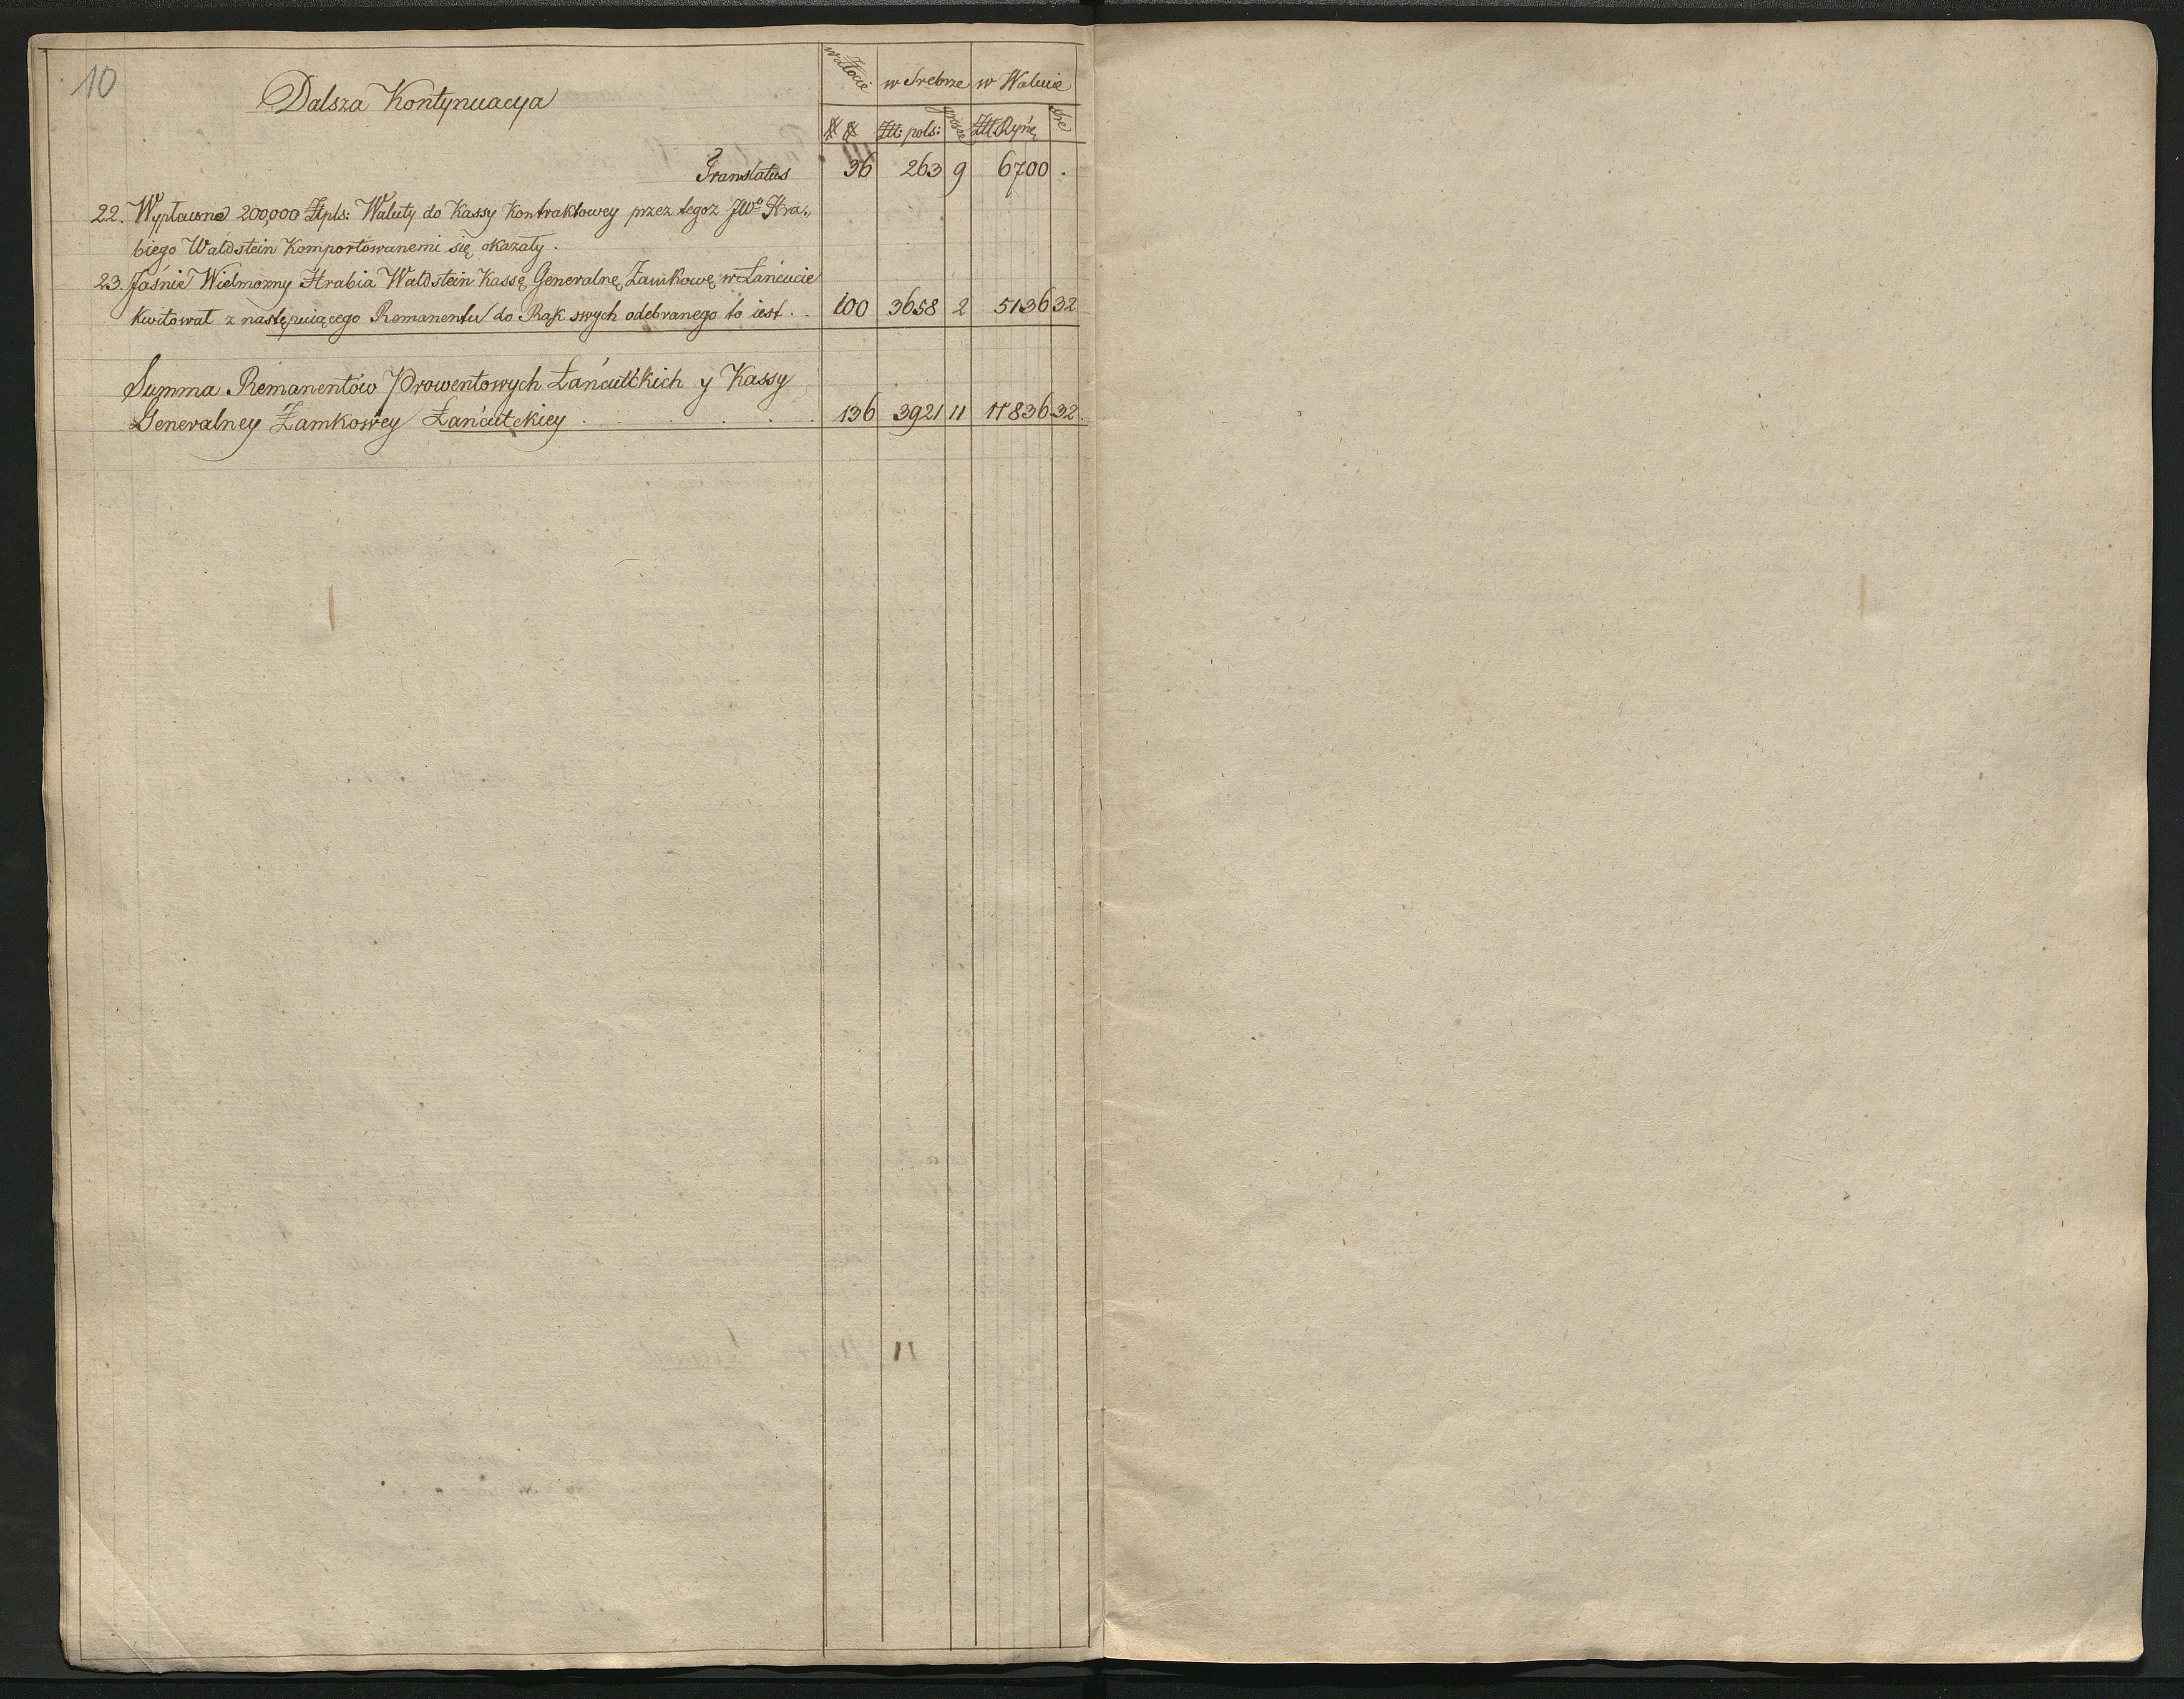 10
Dalsza Kontynuacya
w Złocie w Srebrze w Walucie
## Złł: pols: grosze Złł Ryńs: xbe
Translatus 36 263 9 6700 .
22. Wypłacone 200,000 Złpls: Waluty do Kassy Kontraktowey przez tegoż JWo Hra„
biego Waldstein Komportowanemi się okazały.
23. Jaśnie Wielmożny Hrabia Waldstein Kassę Generalnę Zamkowę w Łańcucie
kwitował z następuiącego Remanentu do Rąk swych odebranego to iest . . 100 3658 2 5136 32
Summa Remanentów Prowentowych Łańcutckich y Kassy
Generalney Zamkowey Łańcutckiey . . . . . . 136 3921 11 11836 32.